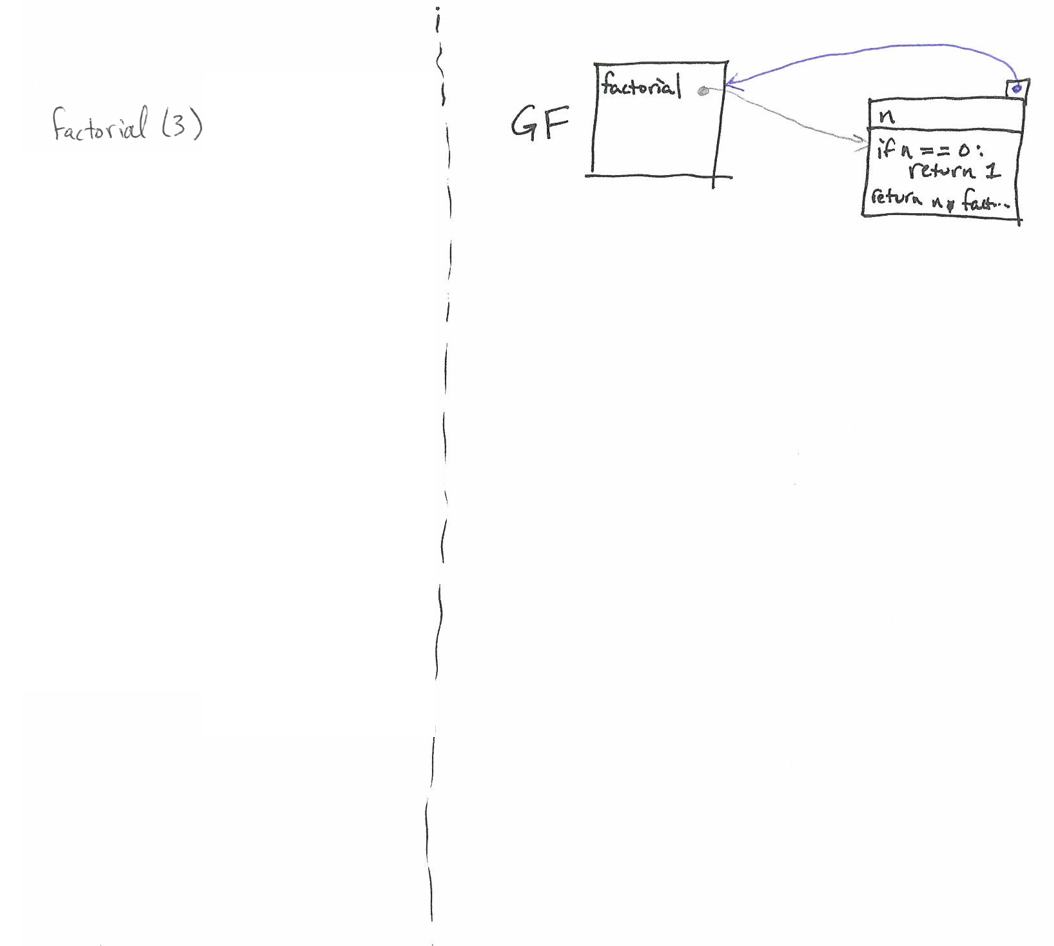 factorial (3)
GF
factorial
n
if n == 0:
return 1
return n * fact...